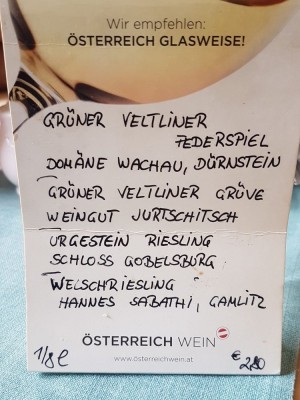 Wir empfehlen:
ÖSTERREICH GLASWEISE!
GRÜNER VELTLINER
FEDERSPIEL
DOMÄNE WACHAU, DÜRNSTEIN
GRÜNER VELTLINER GRÜVE
WEINGUT JURTSCHITSCH
URGESTEIN RIESLING
SCHLOSS GOBELSBURG
WELSCHRIESLING
HANNES SABATHI, GAMLITZ
ÖSTERREICH WEIN
www.österreichwein.at
1/8 l € 2,80